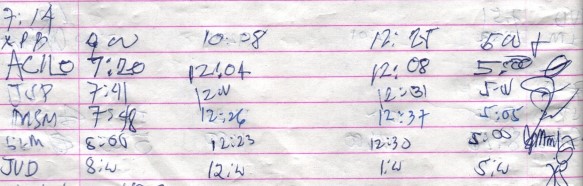 7:14
XPB 9 00 10:08 12:25 500
ACHO 7:20 12:04 12:08 5:00
JSP 7:41 1200 12:31 5:00
MSM 7:48 12:26 12:37 5:05
SLM 8:00 12:23 12:30 5:00
JVD 8:00 12:00 1:00 5:00